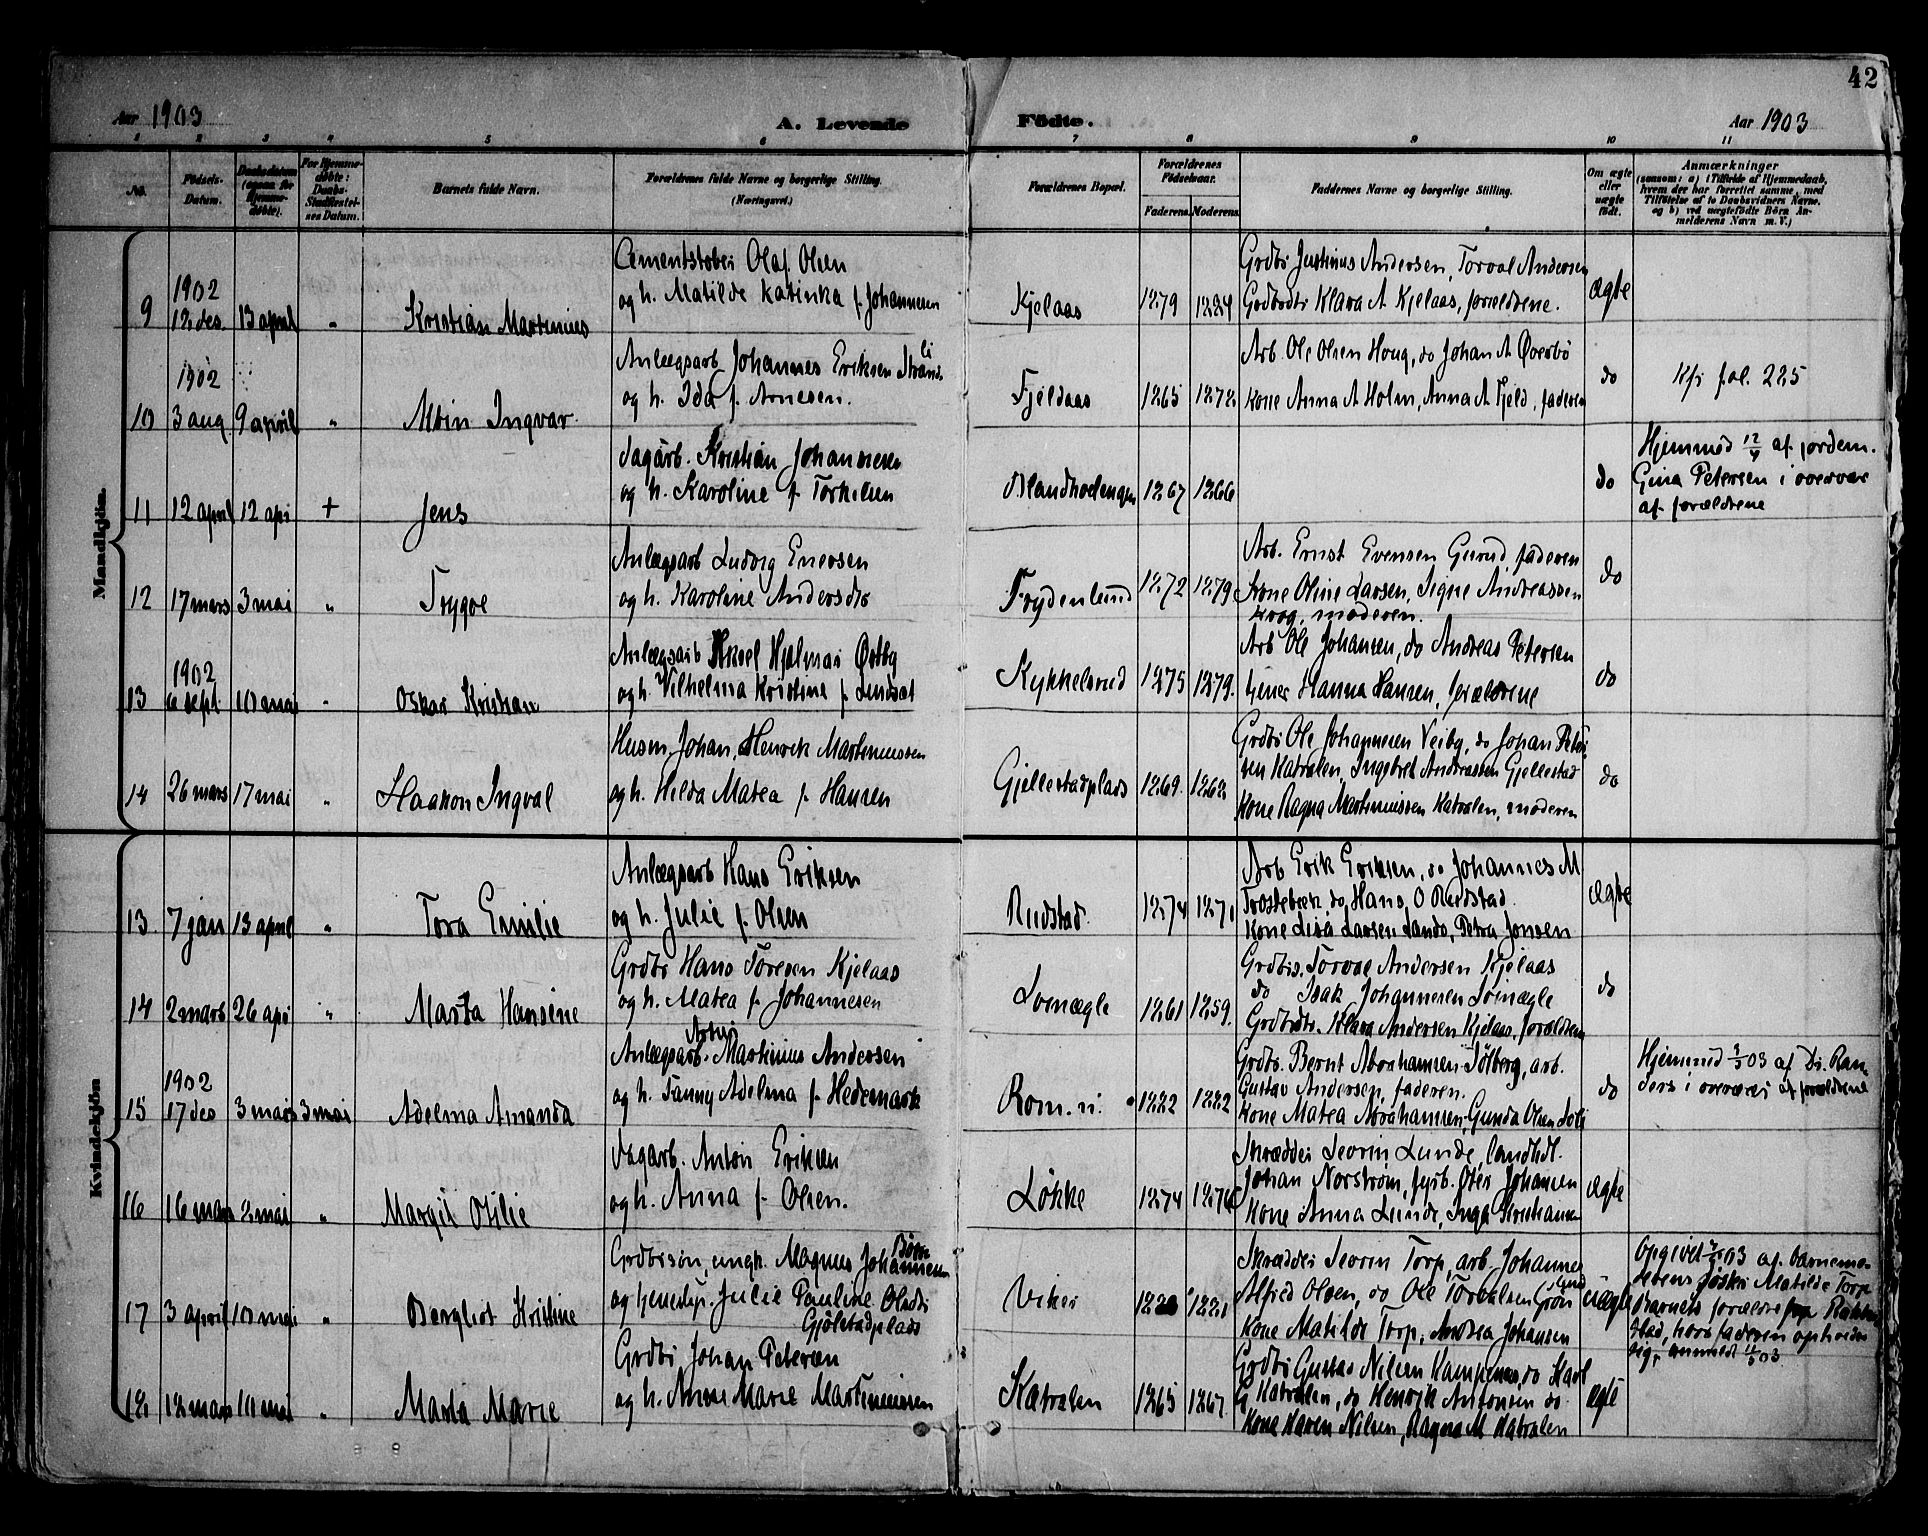 42
Aar 1903
A. Levende
Fødte.
Aar 1903
1 2 3 4 5 6 7 8 9 10 11
No.
Fødsels-Datum.
Daabsdatum (ogsaa for Hjemmedøbte).
For Hjemmedøbte: Daabs-Stadfæstelses Datum.
Barnets fulde Navn.
Forældrenes fulde Navne og borgerlige Stilling.
(Næringsvei.)
Forældrenes Bopæl.
Forældrenes Fødselsaar.
Faderens. Moderens.
Faddernes Navne og borgerlige Stilling.
Om ægte eller uægte født.
Anmærkninger
(saasom: a) i Tilfælde af Hjemmedaab, hvem der har forrettet samme, med Tilføielse af to Daabsvidners Navne. og b) ved uægtefødte Børn Anmelderens Navn m. V.)
Mandkjøn.
9 1902 18 des. 13 april " Kristian Martinius
Cementstøber Olaf Olsen
og h. Matilde Katinka f. Johannesen
Kjelaas 1879 1884
Grdbr Justinius Andersen, Torval Andersen
Grdbrdtr Klara A Kjelaas, forældrene.
ægte
10 1902 3 aug 9 april " Alvin Ingvar
Anlægsarb Johannes Eriksen Strandli
og h. Ida f. Arnesen.
Fjeldaas 1865 1872
Arb. Ole Olsen Houg, do Johan A Øverbö
Kone Anna A Holm, Anna A Fjeld, faderen
do
Kfr fol. 225
11 12 april 12 apr + Jens
Sagarb. Kristian Johannesen
og h. Karoline f. Torkelsen
1867 1866
do
Hjemmed 12/4 af jordem.
Gina Petersen i overvær
af forældrene
12 17 mars 3 mai " Trygve
Anlægsarb Ludvig Enersen
og h. Karoline Andersdtr
Frydenlund 1872 1879
Arb. Ernst Evensen Gurud, faderen
Kone Oline Larsen, Signe Andreassen
Krog, moderen.
do
13 1902 6 sept 10 mai " Oskar Kristian
Anlægsarb Aksel Hjalmar Østby
og h. Vilhelma Kristine f.
Kykkelsrud 1875 1879.
Arb Ole Johansen, do Andreas Petersen
tjener Hanna Hansen, forældrene
do
14 26 mars 17 mai " Haakon Ingval
Husm. Johan Henrik Martinussen
og h. Hilda Matea f. Hansen
Gjellestadplads 1869. 1868
Grdbr Ole Johannesen Veiby, do Johan Peter-
sen Katralen, Ingebret Andreassen Gjellestad
Kone Ragna Martinussen Katralen, moderen
do
Kvindekjøn
13 7 jan 13 april " Tora Emilie
Anlægsarb Hans Eriksen
og h. Julie f. Olsen
Rudstad 1874 1871
Arb Erik Eriksen, do Johannes M
Trostebæk do, Hans O Rudstad.
Kone Lisa Larsen Sando, Petra Jonsen
ægte
14 2 mars 26 apr " Marta Hansine
Grdbr Hans Toresen Kjelaas
og h. Matea f. Johannesen
1861 1859.
Grdbr. Torval Andersen Kjelaas
do Isak Johannesen
Grdbrdtr. Klara Andersen Kjelaas, forældrene
do
15 1902 17 des 3 mars 3 mai Adelma Amanda
Anlægsarb. Martinius Andersen
og h. Fanny Adelma f. Hedemark
Rom. n. 1882 1882
Grdbr. Bernt Abrahamsen Solberg, arb.
Gustav Andersen, faderen.
Kone Matea Abrahamsen, Gunda Olsen
do
Hjemmed 3/3 03 af Dr. Ran-
ders i overvær af forældrene
16 16 mars 2 mai " Margit Otilie
Dagarb. Anton Eriksen
og h. Anna f. Olsen.
Løkke 1874 1876
Skrædder Severin Lunde, landhdl.
Johan Norstrøm, fyrb. Oter Johansen
Kone Anna Lunde, Inga Kristiansen
ægte
17 3 april 10 mai " Bergliot Kristine
Grdbrsøn, ungk. Magnus Johannesen
og tjenestep. Julie Pauline Olsdtr
Gjølstadplads
Viker 1880 1881
Skrædder Severin Torp, arb. Johannes
Alfred Olsen, do Ole Torvalsen Grönlund
Kone Matilde Torp, Andrea Johansen
uægte
Opgivet 3/5 03 af barnemo-
derens søster Matilde Torp
Barnets forældre fra Rakke-
stad, hvor faderen opholder
sig, anmeldt 11/5 03
18 18 mars 10 mai " Marta Marie
Grdbr Johan Petersen
og h. Anne Marie Martinussen
Katralen 1865 1867
Grdbr Gustav Nilsen Kampenes, do Karl
G Katralen, do Henrik Antonsen do.
Kone Karen Nilsen, Ragna M Katralen
ægte